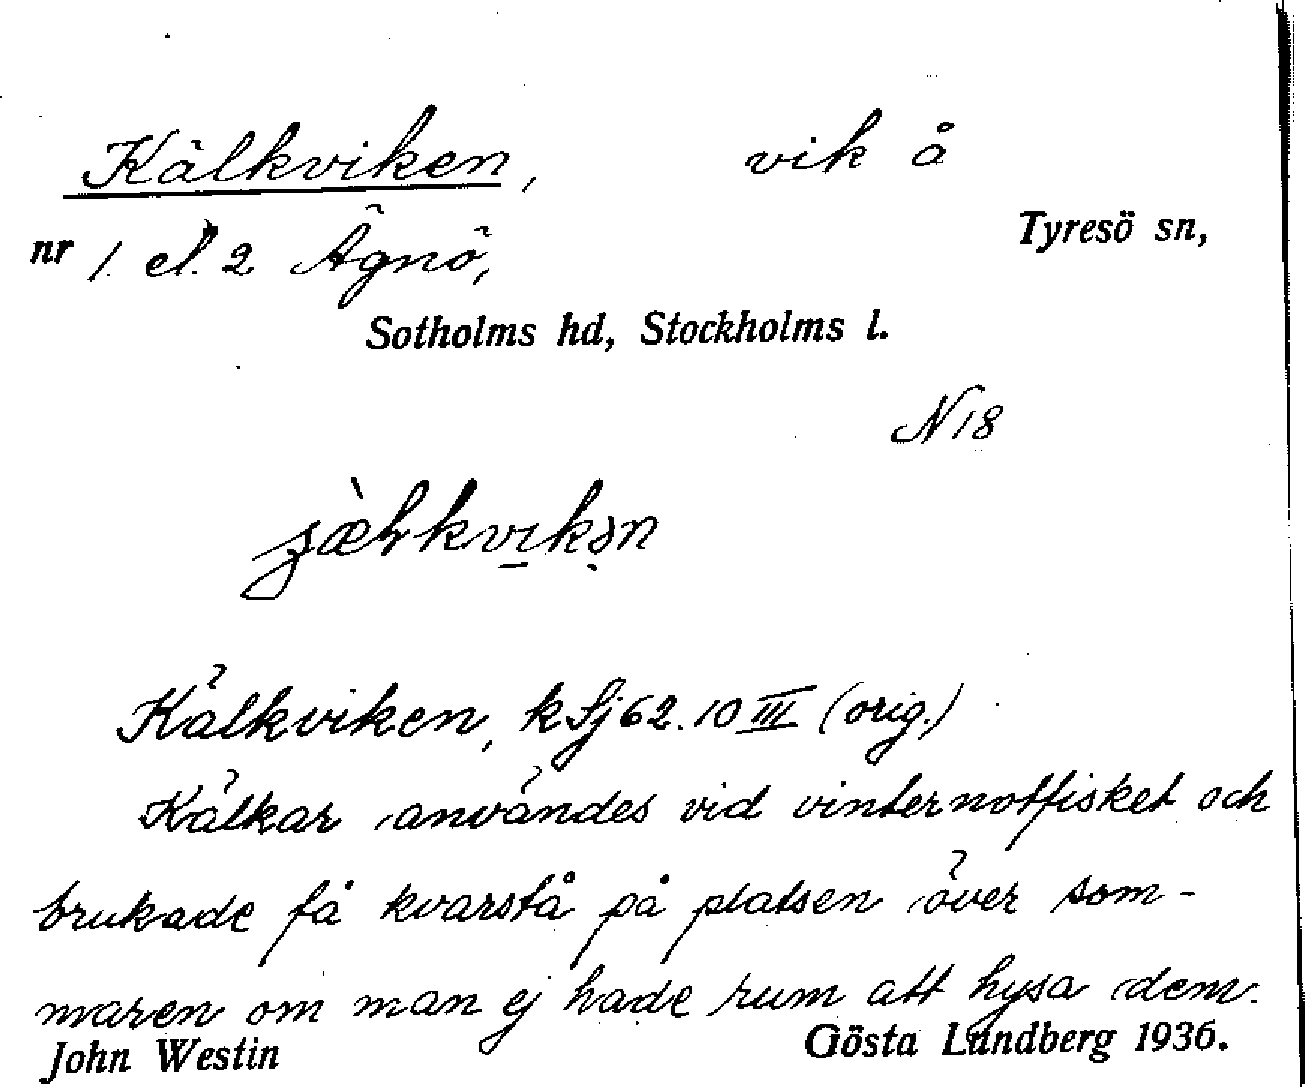 Kälkviken, vik å
Tyresö sn,
nr 1. el. 2 Ägnö,
Sotholms hd, Stockholms l.
N 18
Kälkviken, k Sj 62. 10 III (orig.)
Kälkar användes vid vinternotfisket och
brukade få kvarstå på platsen över som-
maren om man ej hade rum att hysa dem.
John Westin Gösta Lundberg 1936.